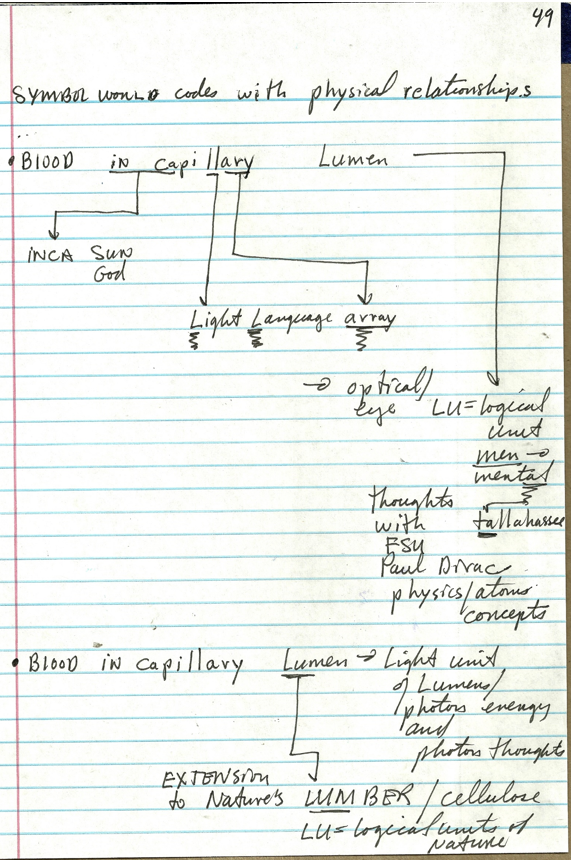 49
SYMBOL WORLD codes with physical relationships
• BLOOD in capillary Lumen
INCA Sun
God
Light Language array
→ optical/
eye
LU=logical
unit
men →
mental
tallahassee
thoughts
with
FSU
Paul Dirac
physics/atoms
concepts
• BLOOD in capillary Lumen → Light unit
of Lumens/
photons energy
and
photons thoughts
EXTENSION
to Nature's LUMBER/cellulose
LU=logical units of
nature